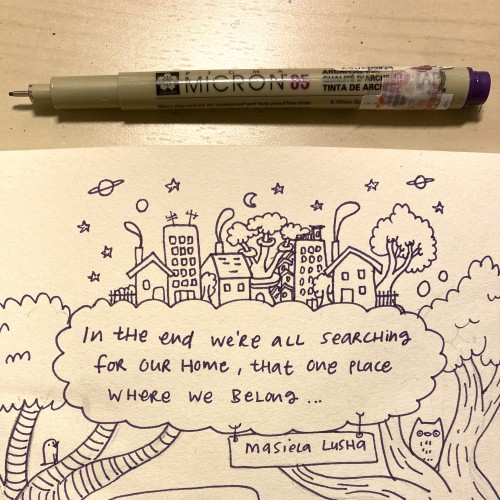 MICRON 05
QUALITÉ D'ARCHI
TINTA DE ARC
0.45mm
In the end we're all searching
for our home, that one place
where we belong...
masiela Lusha